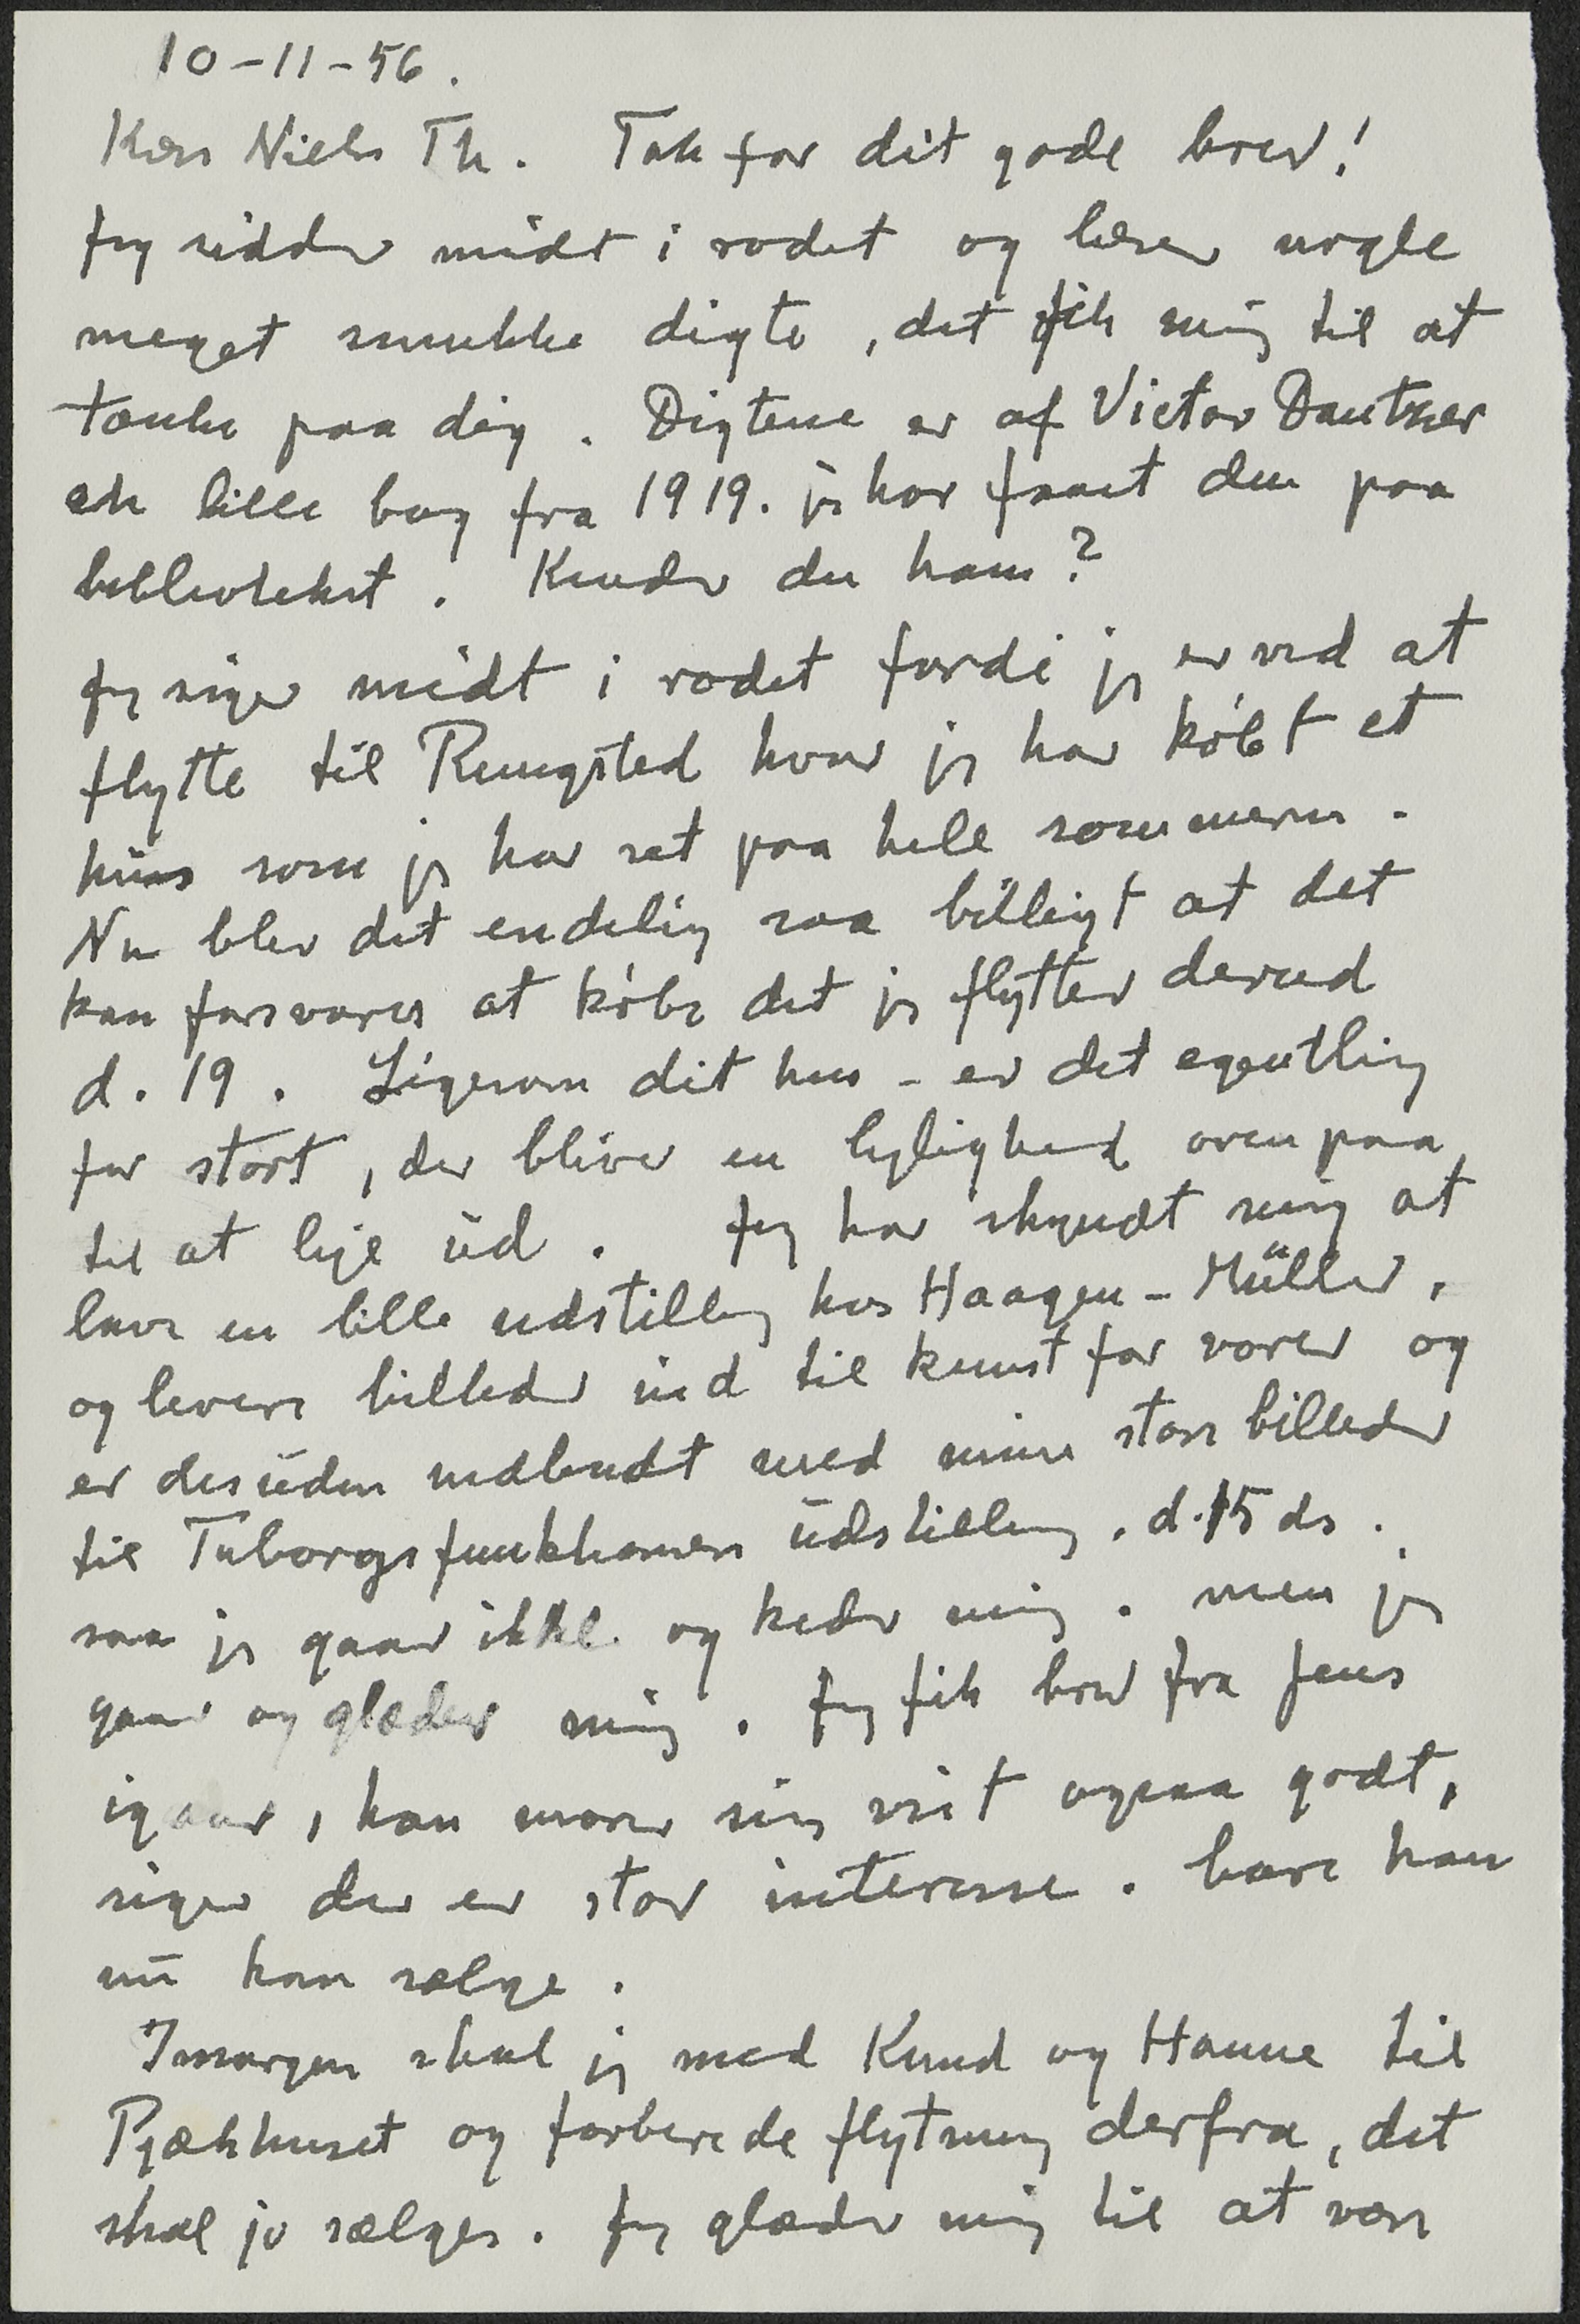 10-11-56.
Kære Niels Th. Tak for dit gode brev!
Jeg sidder midt i rodet og læser nogle
meget smukke digte, det fik mig til at
tænke paa dig. Digtene er af Victor Dantzer
en lille bog fra 1919. jeg har faaet den paa
biblioteket. Kender du ham?
Jeg siger midt i rodet fordi jeg er ved at
flytte til Rungsted hvor jeg har købt et
hus som jeg har set paa hele sommeren.
Nu blev det endelig saa billigt at det
kan forsvares at købe det jeg flytter derud
d. 19. Ligesom dit hus - er det egentlig
for stort, der bliver en lejlighed ovenpaa
til at leje ud. Jeg har skyndt mig at
lave en lille udstilling hos Haagen-Müller,
og levere billeder ind til kunst for varer og
er desuden indbudt med mine store billeder
til Tuborgsfunktionærers udstilling. d. 15 ds.
saa jeg gaar ikke og keder mig. men jeg
gaar og glæder mig. Jeg fik brev fra Jens
igaar, han morer sig vist ogsaa godt,
siger der er stor interesse. bare han
nu kan sælge.
Imorgen skal jeg med Knud og Hanne til
Pjækhuset og forberede flytning derfra, det
skal jo sælges. Jeg glæder mig til at være